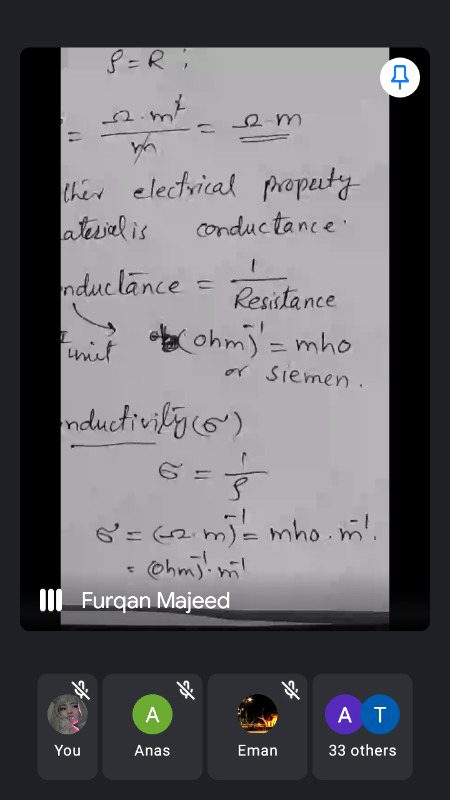 ρ = R ;
= Ω·m² / m = Ω·m
ther electrical property
aterial is conductance.
nductance = 1 / Resistance
I unit (ohm)⁻¹ = mho
or siemen.
nductivity (σ)
σ = 1 / ρ
σ = (Ω·m)⁻¹ = mho·m⁻¹.
= (ohm)⁻¹·m⁻¹
Furqan Majeed
You
A
Anas
Eman
A T
33 others